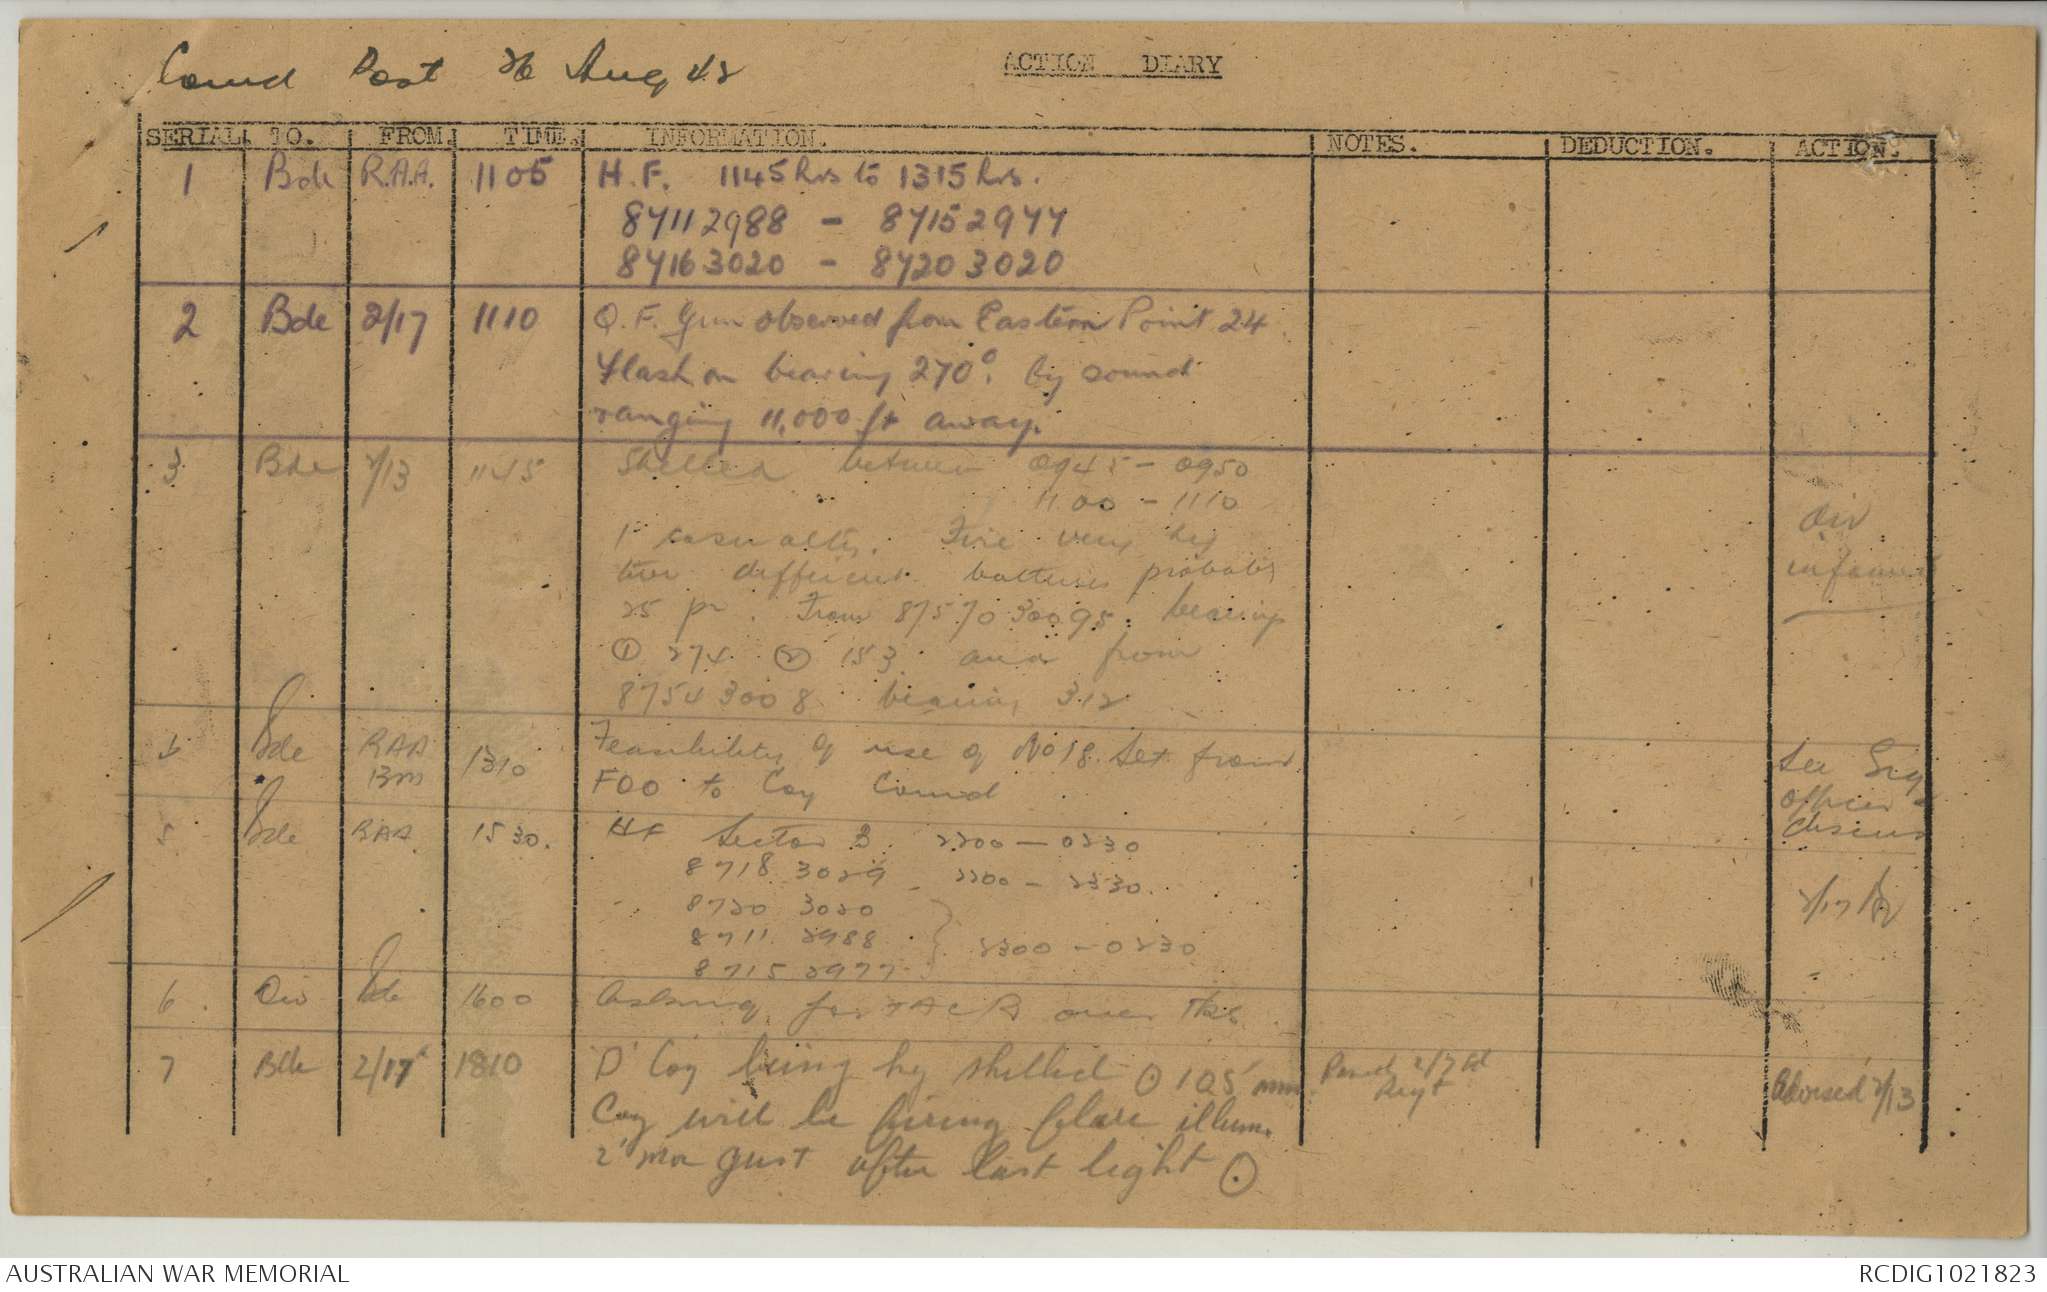 Comd Post 26 Aug 42
ACTION DIARY
SERIAL. TO. FROM. TIME. INFORMATION. NOTES. DEDUCTION. ACTION.
1 Bde R.A.A. 1105 H.F. 1145 hrs to 1315 hrs.
87112988 - 87152977
87163020 - 87203020
2 Bde 2/17 1110 Q.F. Gun observed from Eastern Point 24
Flash on bearing 270°. By sound
ranging 11,000 ft away.
3 Bde 2/13 1145 Shelled between 0945 - 0950
1100 - 1110
1 casualty. Fire very hy
two different batteries probably
25 pr. From 87570 30095. bearing
① 274 ② 153 and from
8754 3008 bearing 312
Div
informed
4 Bde RAA BM 1310 Feasibility of use of No 18 Set from
FOO to Coy Comd
See Sig
officer &
discuss
5 Bde RAA 1530. HF Sector B. 2200 - 0230
8718 3029 - 2200 - 2330.
8720 3020
8711 2988
2300 - 0230
8715 2977
2/17
6 Div Bde 1600 Asking for TAC R over
7 Bde 2/17 1810 'D' Coy being hy shelled ⊙ 105 mm
Coy will be firing flare illum.
2" mor just after last light ⊙
Passed 2/7 Fd
Regt
Advised 2/13
AUSTRALIAN WAR MEMORIAL
RCDIG1021823